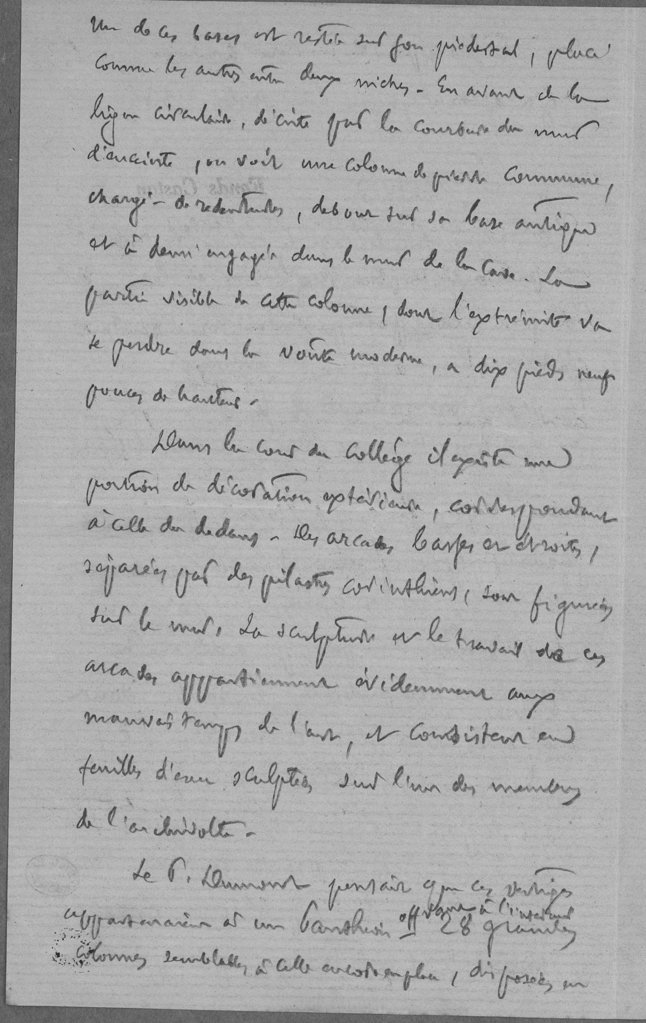 Une de ces bases est restée sur son piédestal, placé
comme les autres entre deux niches. En avant de la
ligne circulaire, décrite par la courbure du mur
d'enceinte, on voit une colonne de pierre commune,
chargée de rudentures, debout sur sa base antique
et à demi engagée dans le mur de la cave. La
partie visible de cette colonne, dont l'extrémité va
se perdre dans la voûte moderne, a dix pieds neuf
pouces de hauteur.
Dans la cour du Collège il existe une
portion de décoration extérieure, correspondant
à celle du dedans. Des arcades basses et étroites,
séparées par des pilastres corinthiens, sont figurées
sur le mur. La sculpture et le travail de ces
arcades appartiennent évidemment aux
mauvais temps de l'art, et consistent en
feuilles d'eau sculptées sur l'un des membres
de l'archivolte.
Le P. Dumont pensait que ces vestiges
appartenaient à un Panthéon offrant à l'intérieur 28 grandes
colonnes semblables à celle encore en place, disposées en